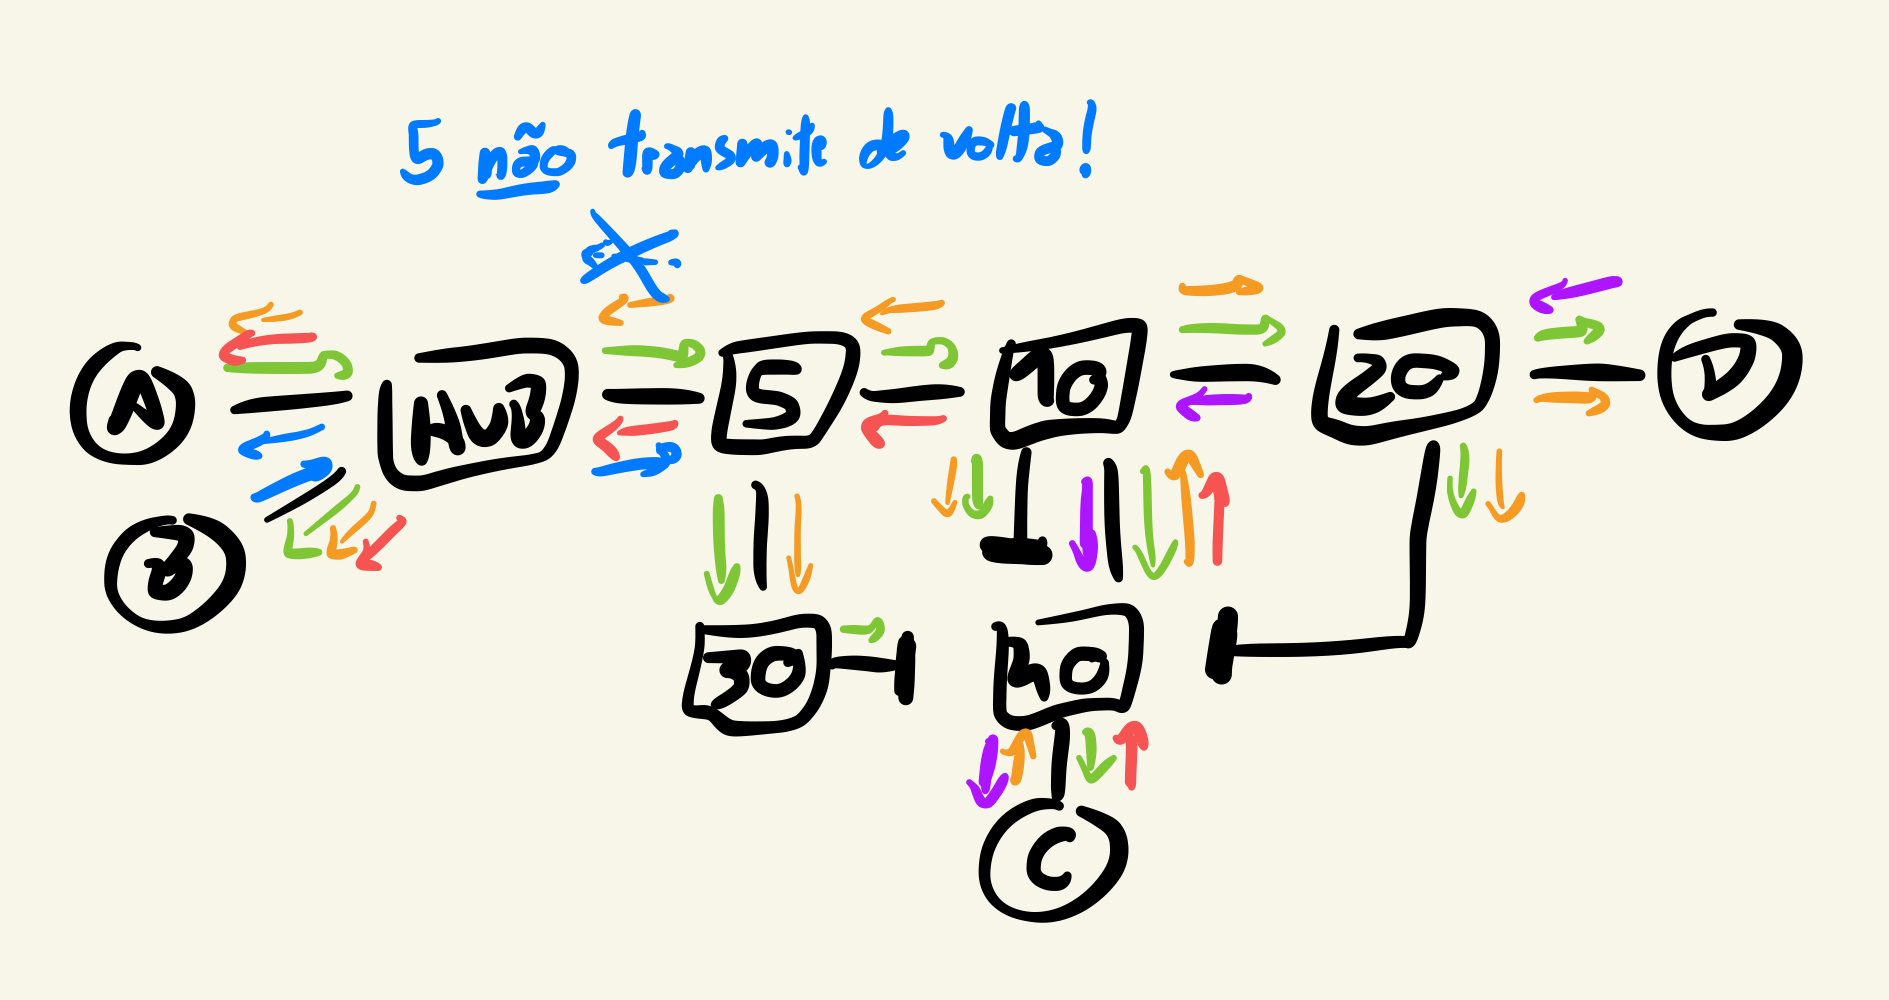 5 não transmite de volta!
A HUB 5 10 20 D
B
30 40
C